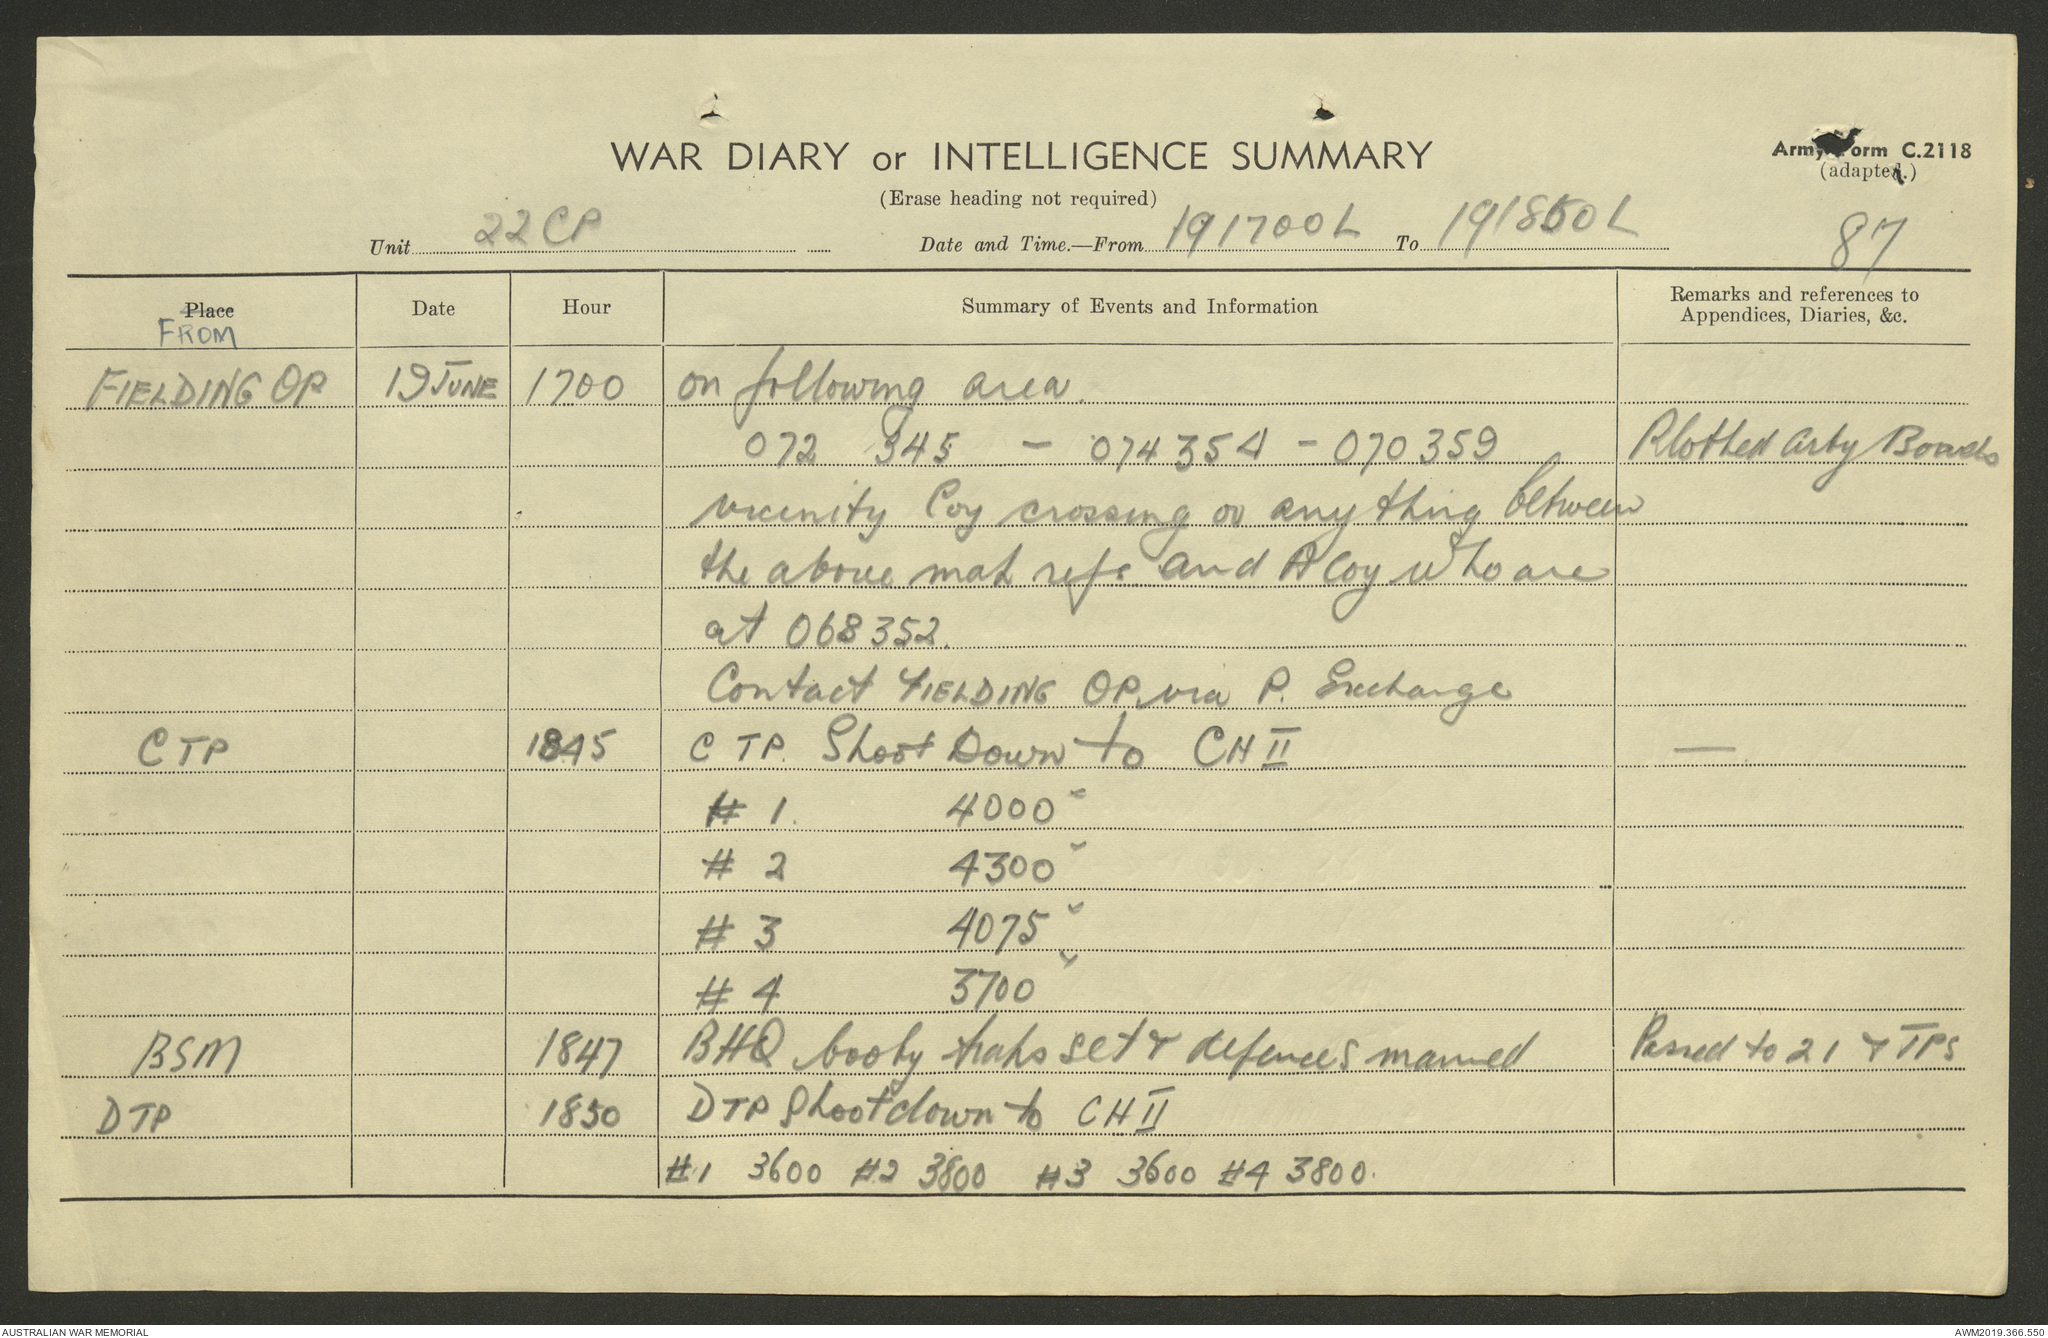 WAR DIARY or INTELLIGENCE SUMMARY
Army Form C.2118
(adapted.)
(Erase heading not required)
Unit 22 CP Date and Time.—From 191700L To 191850L 87
Place Date Hour Summary of Events and Information Remarks and references to Appendices, Diaries, &c.
FROM
FIELDING OP 19 JUNE 1700 on following area.
072 345 - 074354 - 070359 Plotted Arty Boards
vicinity Coy crossing or anything between
the above map refs and A Coy who are
at 068352.
Contact FIELDING OP via P. Exchange
C TP 1845 C TP. Shoot Down to CH II —
# 1. 4000
# 2 4300
# 3 4075
# 4 3700
BSM 1847 BHQ booby traps set & defences manned Passed to 21 & TPs
D TP 1850 D TP Shoot down to CH II
#1 3600 #2 3800 #3 3600 #4 3800.
AUSTRALIAN WAR MEMORIAL
AWM2019.366.550